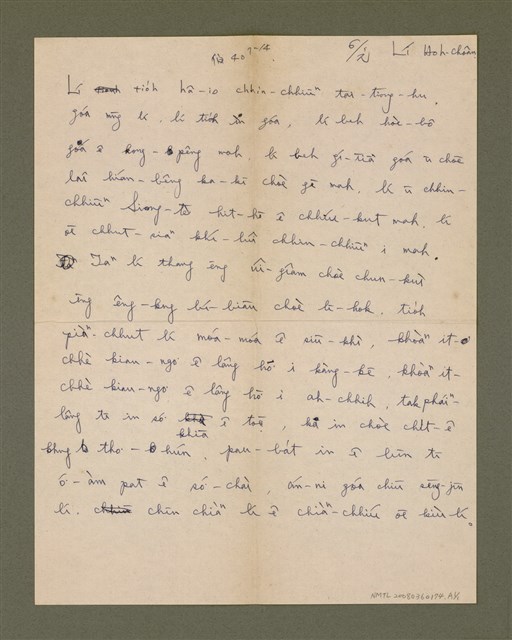 伯 40 7-14 6/元 Lí Hoh-chhiân
Lí tio̍h hâ-io chhin-chhiūⁿ tāi-tiōng-hu,
góa mn̄g lí, lí tio̍h ìn góa, lí beh hòe-bô
góa ê kong-pêng mah, lí beh gí-tiā góa ū chōe
lâi hián-bêng ka-kī chòe gī mah, lí ū chhin-
chhiūⁿ Siong-tè hit-hō ê chhiú-kut mah, lí
ōe chhut-siaⁿ khí-lûi chhin-chhiūⁿ i mah.
Taⁿ lí thang ēng ûi-giâm chòe chun-kùi
ēng êng-kng hú-lē chòe i-ho̍k, tio̍h
piàⁿ-chhut lí móa-móa ê siū-khì, khòaⁿ it-
chhè kiau-ngō ê lâng hō i kàng-kē, khòaⁿ it-
chhè kiau-ngō ê lâng hō i ah-chhih, tah pháiⁿ-
lâng tī in só khiā ê tè, kā in chòe chi̍t-ē
bâng thô-hún, pau-ba̍t in ê bīn tī
ò-àm pat ê só-chāi, án-ni góa chiū sêng-jīn
lí. chīn chiàⁿ lí ê chiàⁿ-chhiú ōe kiù lí.
NMTL 20080360174. A1/1